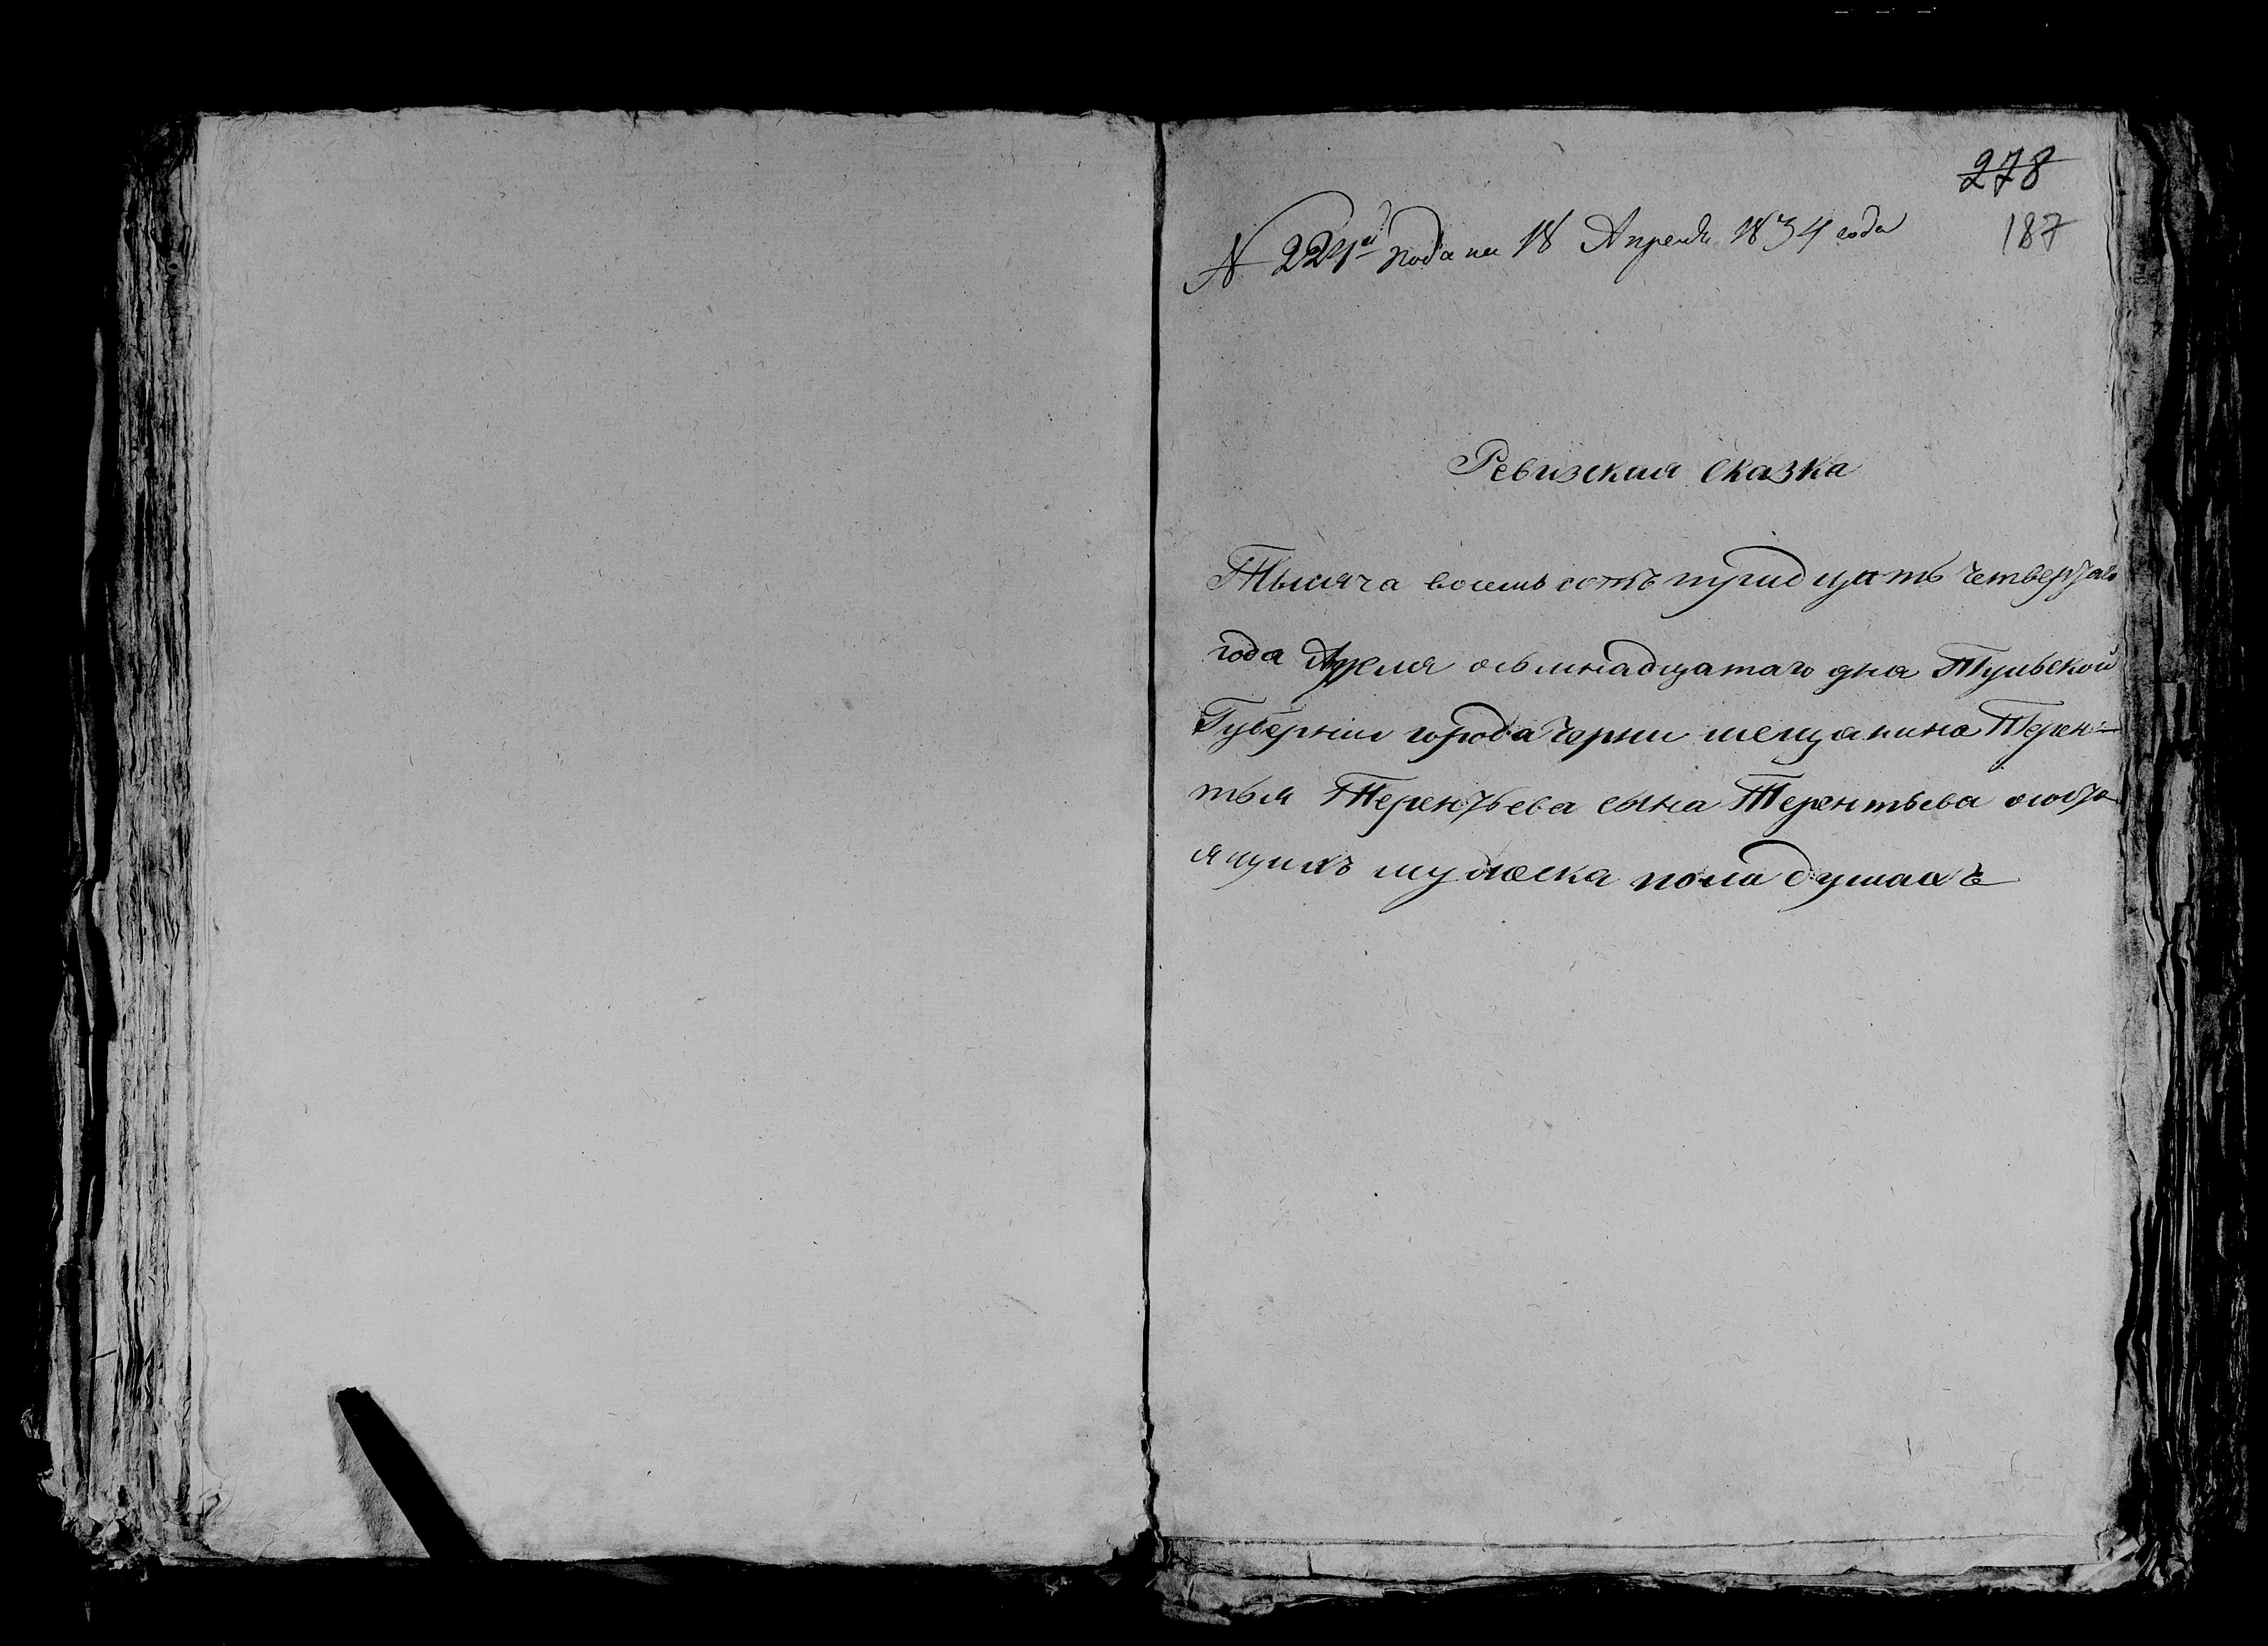 278
187
№ 224й подана 18 Апреля 1834 года
Ревизская сказка
Тысяча восемь сотъ тридцать четвертаго
года Апреля осьмнадцатаго дня Тульской
Губернии города Черни мещанина Терен=
тья Терентьева сына Терентьева о состо
ящихъ мужеска пола душахъ